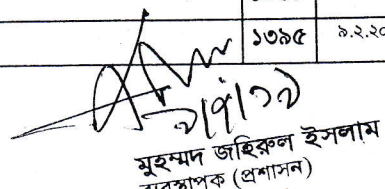 ১৩৯৫ ৯.২.২০
মুহম্মদ জহিরুল ইসলাম
ব্যবস্থাপক (প্রশাসন)